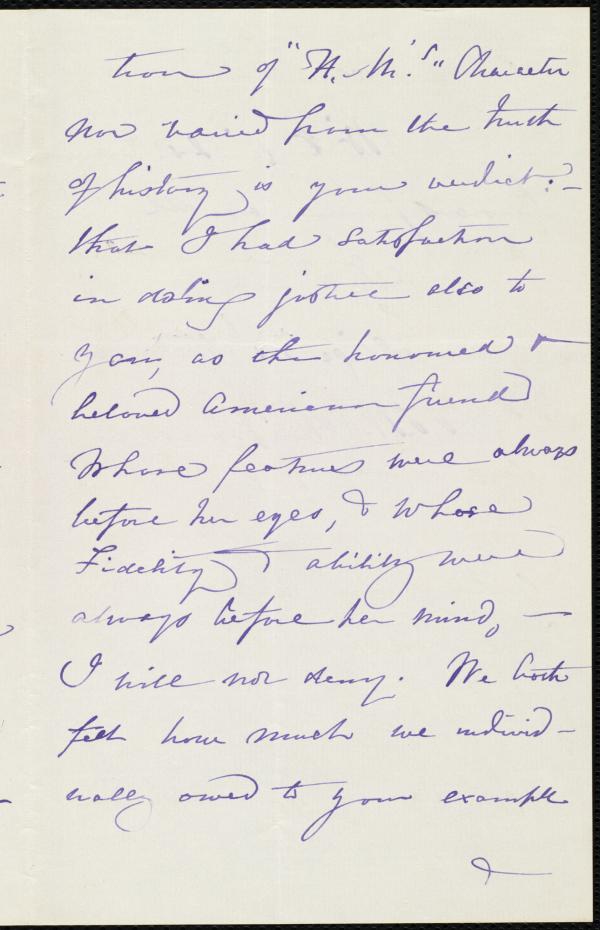 tion of "H. M.'s" Character
nor varied from the truth
of history is your verdict: –
that I had satisfaction
in doling justice also to
you, as the honoured &
beloved American friend
Whose features were always
before her eyes, & whose
Fidelity & ability were
always before her mind, —
I will not deny. We both
felt how much we individ–
ually owed to your example
&